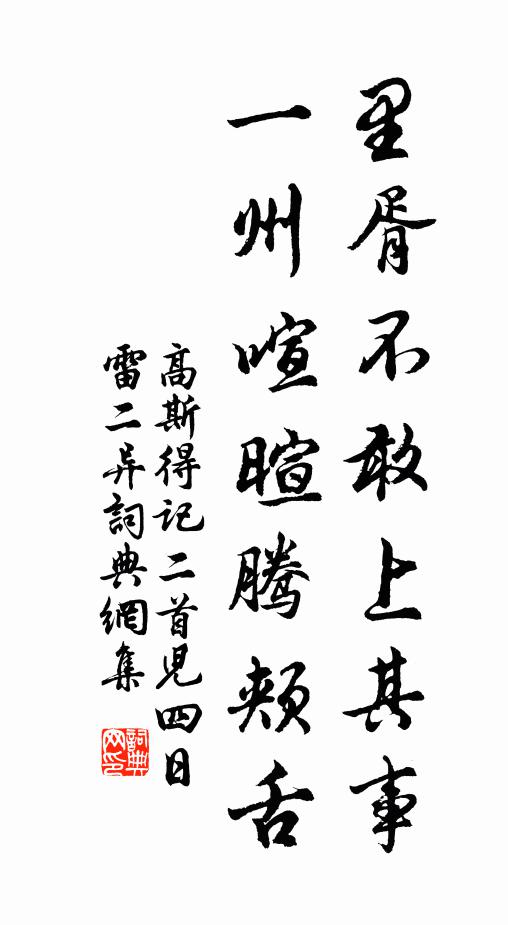 里胥不敢上其事
一州喧暄腾颊舌
高斯得记二首児四日
雷二异詞典網集
詞典网印